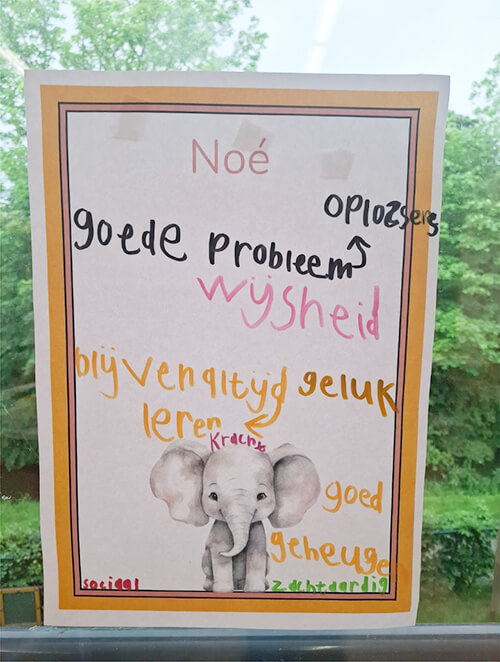 Noé
oplozsers
goede probleem
wijsheid
blijven altijd geluk
leren
kracht
goed
geheuge
sociaal
zachtaardig